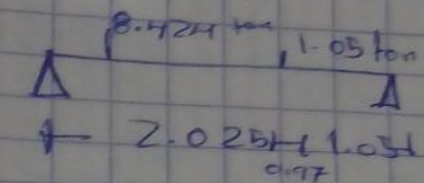 8.424 ton
1.05 ton
2.025 1.05
0.97